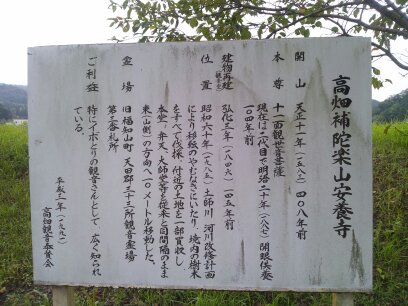 高畑補陀栄山安養寺
開山　天正十一年（一五八二）四〇八年前
本尊　十一面観世音菩薩
現在は二代目で明治二十年（一八八七）開眼供養
一〇四年前
建物再建　弘化三年（一八四六）一四五年前
位置　昭和六十年（一九八五）土師川河川改修計画
により移転のやむなきにいたり、境内の樹木
をすべて伐採、付近の土地を一部買収し
本堂、弁天、大師堂等を従来と同間隔のまま
東（山側）の方向へ一〇メートル移動した。
霊場　旧福知山町　天田郡三十三所観音霊場
第二番札所
ご利益　特にイボとりの観音さんとして、広く知られ
ている。
平成三年（一九九一）
高畑観音奉賛会